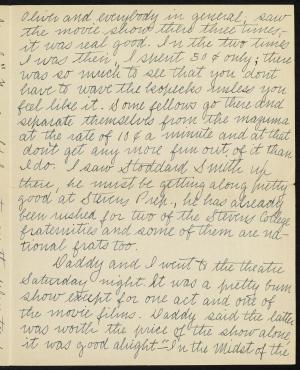 Oliver and everybody in general, saw
the movie show there three times,-
it was real good. In the two times
I was then, I spent 50¢ only; there
was so much to see that you don't
have to wave the kopecks unless you
feel like it. Some fellows go there and
separate themselves from the mazuma
at the rate of 10¢ a minute and at that
don't get any more fun out of it than
I do. I saw Stoddard Smith up
there, he must be getting along pretty
good at Stevens Prep., he has already
been rushed for two of the Stevens College
fraternities and some of them are na-
tional frats too.
Daddy and I went to the theatre
Saturday night. It was a pretty bum
show except for one act and one of
the movie films. Daddy said the latter
was worth the price of the show alone,
it was good alright "In the Midst of the